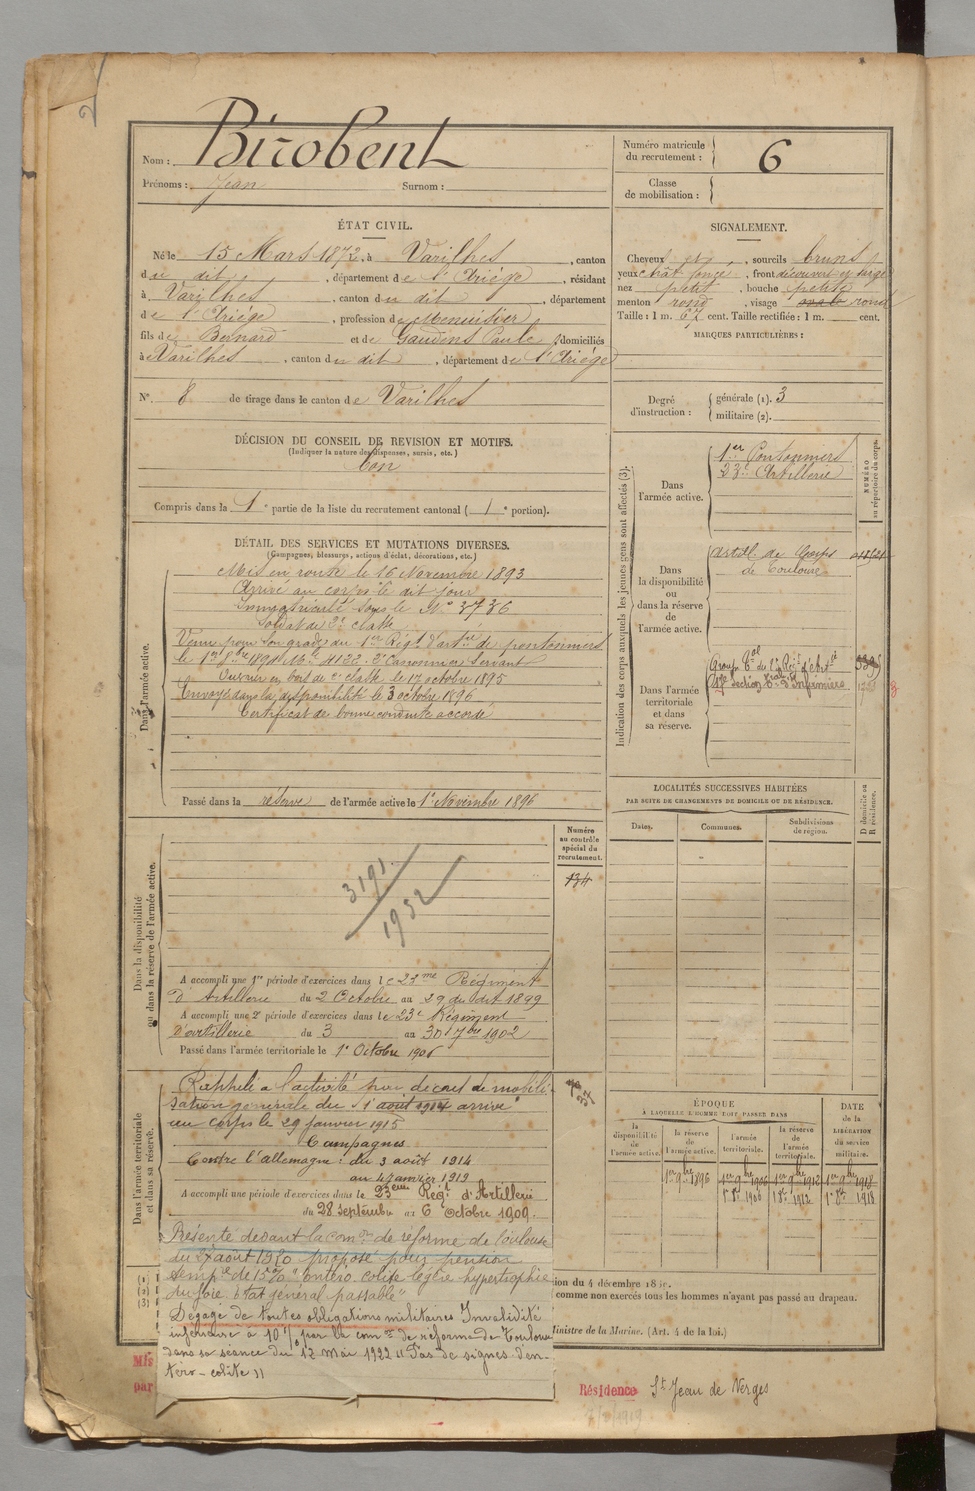 2
Nom : Birobent
Prénoms : Jean Surnom :
Numéro matricule du recrutement : 6
Classe de mobilisation :
ÉTAT CIVIL.
Né le 15 Mars 1872, à Varilhes, canton
du dit, département de l'Ariège, résidant
à Varilhes, canton du dit, département
de l'Ariège, profession de Menuisier
fils de Bernard et de Gaudens Paule, domiciliés
à Varilhes, canton du dit, département de l'Ariège
N° 8 de tirage dans le canton de Varilhes
SIGNALEMENT.
Cheveux, sourcils bruns
yeux chât. foncé, front découvert et large
nez petit, bouche petite
menton rond, visage ovale rond
Taille : 1 m. 67 cent. Taille rectifiée : 1 m. cent.
MARQUES PARTICULIÈRES :
Degré d'instruction : générale (1). 3
militaire (2).
DÉCISION DU CONSEIL DE REVISION ET MOTIFS.
(Indiquer la nature des dispenses, sursis, etc.)
bon
Compris dans la 1e partie de la liste du recrutement cantonal (1e portion).
DÉTAIL DES SERVICES ET MUTATIONS DIVERSES.
(Campagnes, blessures, actions d'éclat, décorations, etc.)
Dans l'armée active.
Mis en route le 16 Novembre 1893
Arrivé au corps le dit jour
Immatriculé sous le N° 3736
Soldat de 2e classe
Venu pour son grade du 1er Régt d'artie de pontonniers
le 1er 8bre 1894 Mle 4122. 2e Canonnier Servant
Ouvrier en bois de 2e classe le 17 octobre 1895
Envoyé dans la disponibilité le 3 octobre 1896
Certificat de bonne conduite accordé
Passé dans la réserve de l'armée active le 1er Novembre 1896
Indication des corps auxquels les jeunes gens sont affectés (3).
NUMÉRO au répertoire du corps.
Dans l'armée active.
1er Pontonniers
23e Artillerie
Dans la disponibilité ou dans la réserve de l'armée active.
Artil. de Corps
de Toulouse
Dans l'armée territoriale et dans sa réserve.
Groupe Tal du 1er Régt d'Artie
17e Section Tale d'Infirmiers
LOCALITÉS SUCCESSIVES HABITÉES
PAR SUITE DE CHANGEMENTS DE DOMICILE OU DE RÉSIDENCE.
Dates. Communes. Subdivisions de région. D domicile ou R résidence.
Dans la disponibilité ou dans la réserve de l'armée active.
Numéro au contrôle spécial du recrutement.
134
3191
1932
A accompli une 1re période d'exercices dans le 23me Régiment
d'Artillerie du 2 Octobre au 29 du dit 1899
A accompli une 2e période d'exercices dans le 23e Régiment
d'artillerie du 3 au 30 7bre 1902
Passé dans l'armée territoriale le 1er Octobre 1906
Dans l'armée territoriale et dans sa réserve.
Rappelé à l'activité par décret de mobili-
sation générale du 1er août 1914 arrivé
au corps le 29 janvier 1915
Campagnes
Contre l'allemagne : du 3 août 1914
au 4 janvier 1919
A accompli une période d'exercices dans le 23eme Régt d'Artillerie
du 28 septembre au 6 octobre 1909.
Présenté devant la comon de réforme de Toulouse
du 27 août 1920 proposé pour pension
temp. de 15% "entéro colite légère hypertrophie
du foie. Etat général passable"
Dégagé de toutes obligations militaires Invalidité
inférieure à 10% par la comon de réforme de Toulouse
dans sa séance du 17 mai 1922 "Pas de signes d'en-
téro-colite"
ÉPOQUE
À LAQUELLE L'HOMME DOIT PASSER DANS
la disponibilité de l'armée active. la réserve de l'armée active. l'armée territoriale. la réserve de l'armée territoriale. DATE de la LIBÉRATION du service militaire.
1er 9bre 1896 1er 9bre 1906 1er 9bre 1912 1er 9bre 1918
1er 8bre 1906 1er 8bre 1912 1er 8bre 1918
(1)
(2)
(3)
ion du 4 décembre 18
comme non exercés tous les hommes n'ayant pas passé au drapeau.
Ministre de la Marine. (Art. 4 de la loi.)
Mis
par
Résidence St Jean de Verges